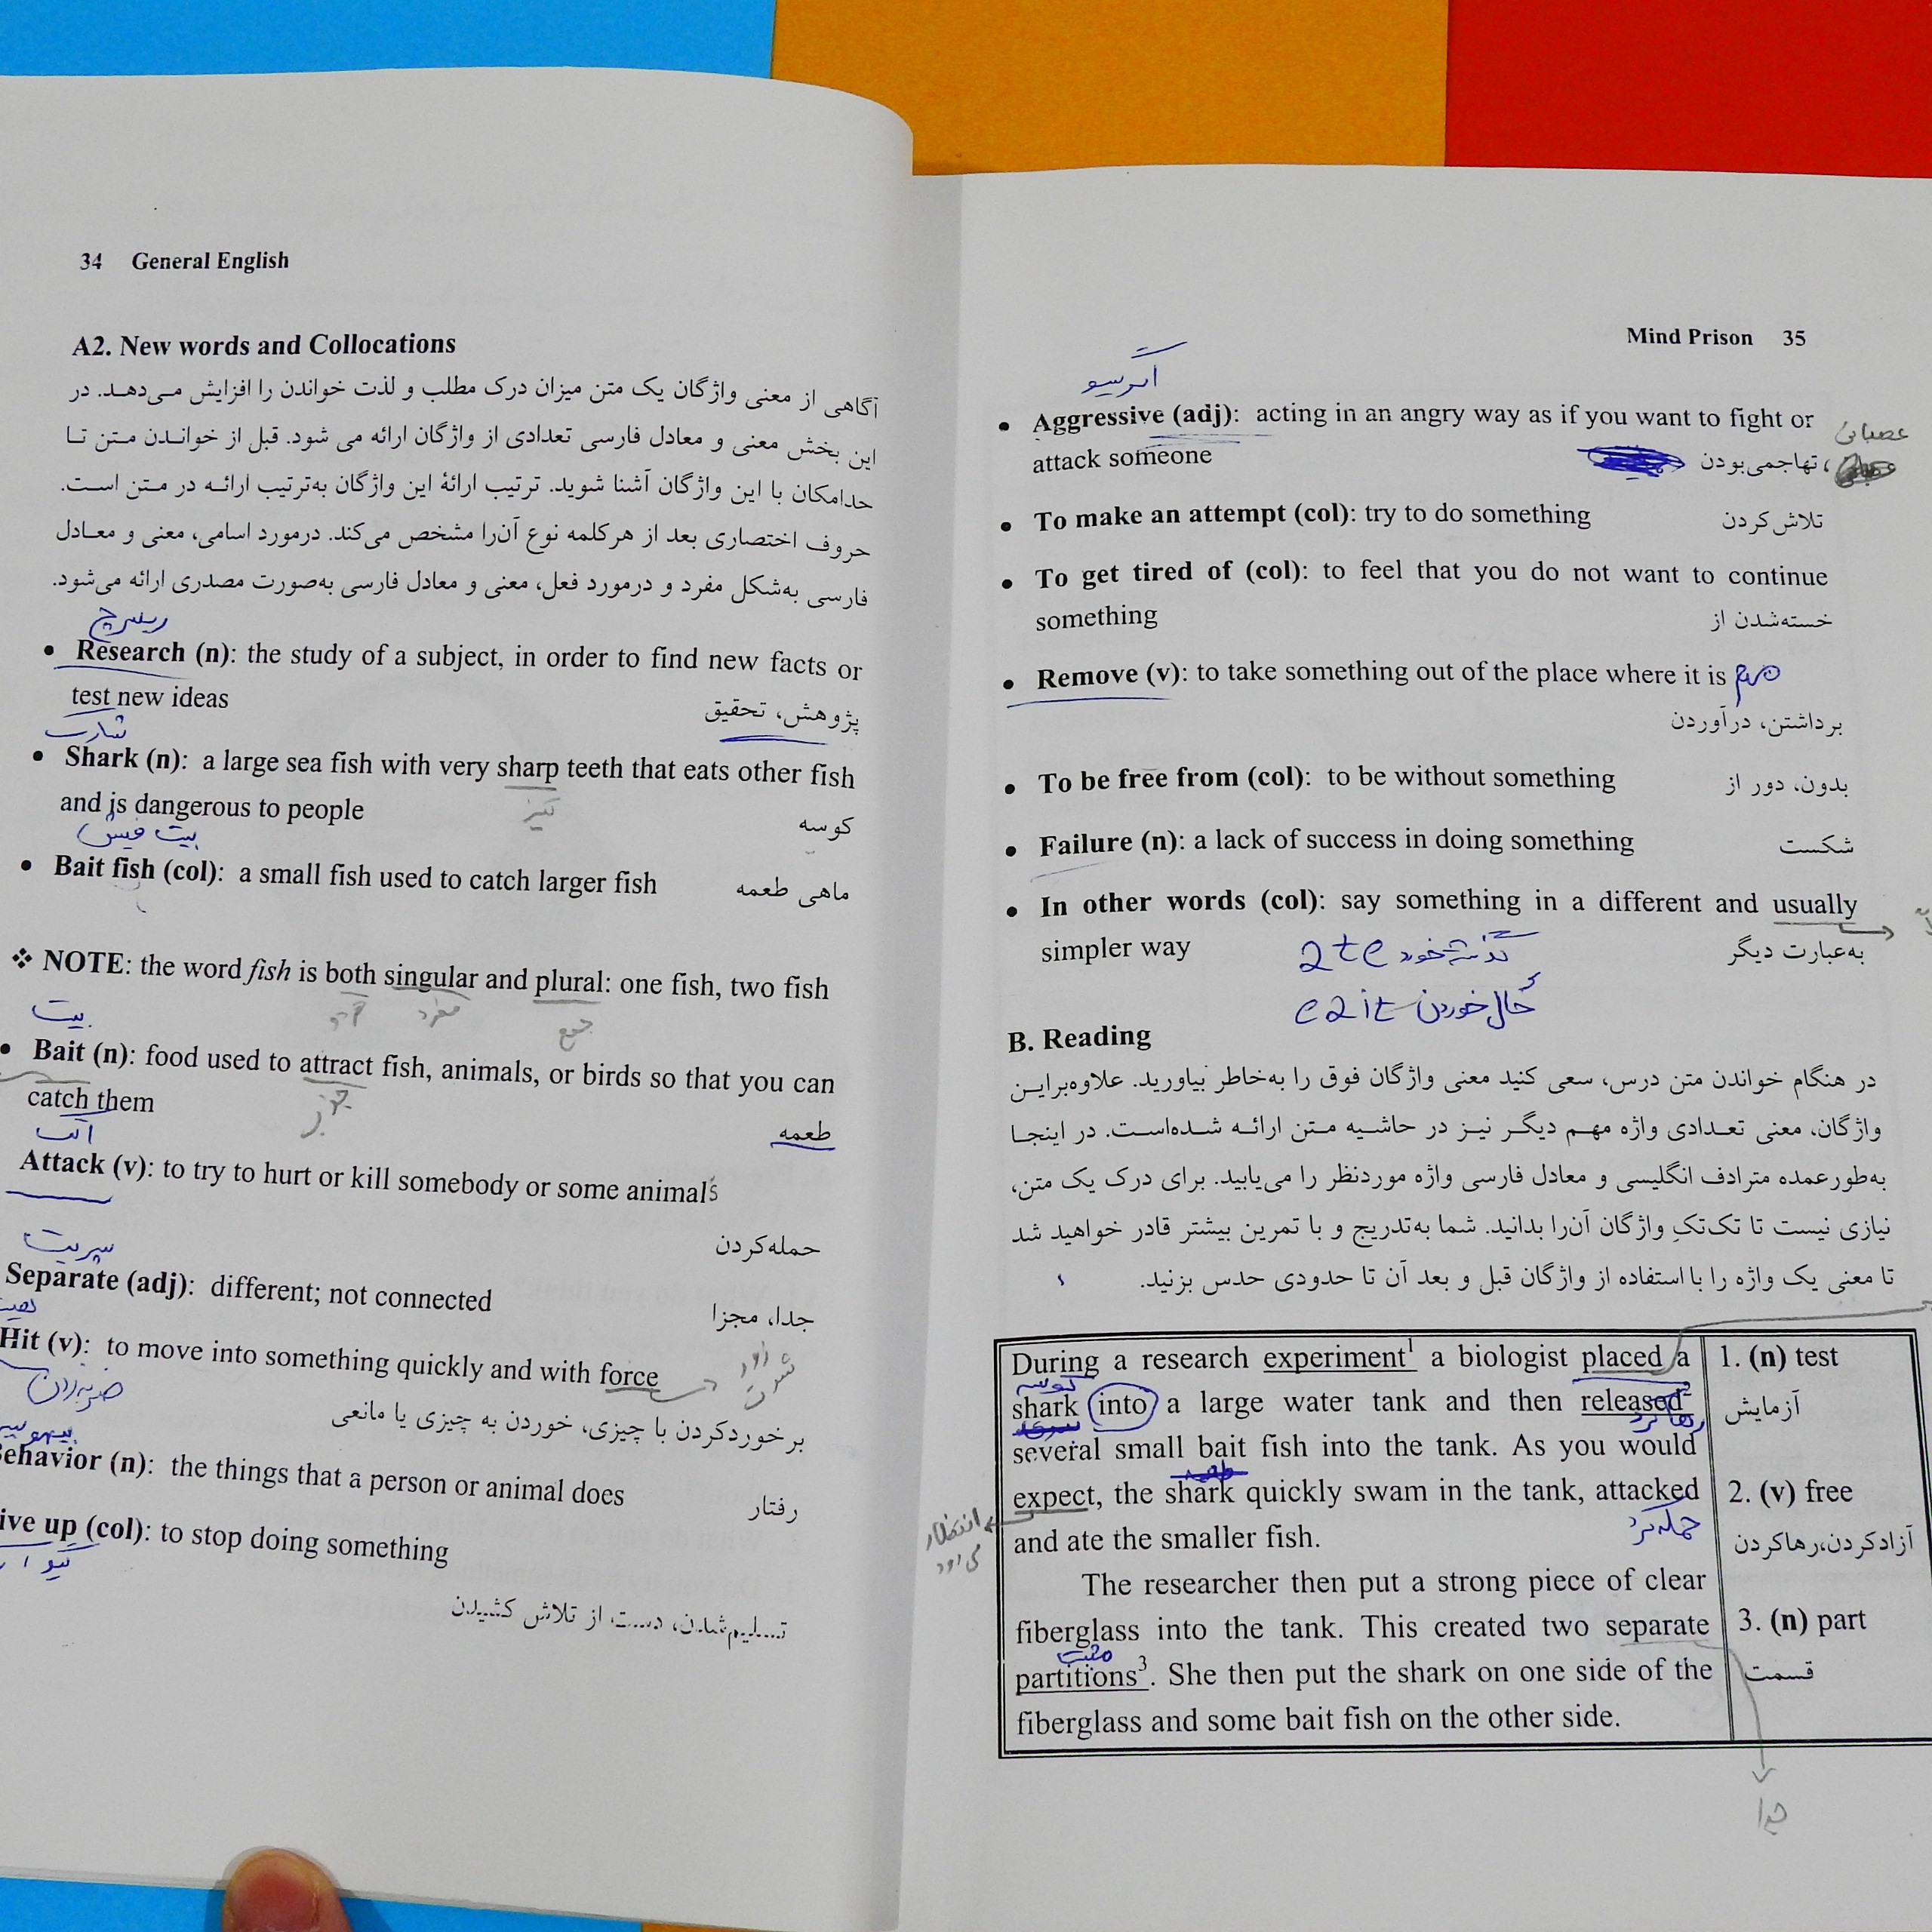 34 General English
A2. New words and Collocations
آگاهی از معنی واژگان یک متن میزان درک مطلب و لذت خواندن را افزایش می‌دهد. در
این بخش معنی و معادل فارسی تعدادی از واژگان ارائه می شود. قبل از خواندن متن تا
حدامکان با این واژگان آشنا شوید. ترتیب ارائهٔ این واژگان به‌ترتیب ارائه در متن است.
حروف اختصاری بعد از هرکلمه نوع آن‌را مشخص می‌کند. درمورد اسامی، معنی و معادل
فارسی به‌شکل مفرد و درمورد فعل، معنی و معادل فارسی به‌صورت مصدری ارائه می‌شود.
ریسرچ
• Research (n): the study of a subject, in order to find new facts or
test new ideas پژوهش، تحقیق
شارک
• Shark (n): a large sea fish with very sharp teeth that eats other fish
and is dangerous to people کوسه
تیز
بیت فیش
• Bait fish (col): a small fish used to catch larger fish ماهی طعمه
❖ NOTE: the word fish is both singular and plural: one fish, two fish
هردو مفرد جمع
بیت
• Bait (n): food used to attract fish, animals, or birds so that you can
catch them طعمه
جذب
اتک
Attack (v): to try to hurt or kill somebody or some animals
حمله‌کردن
سپریت
Separate (adj): different; not connected جدا، مجزا
هیت
Hit (v): to move into something quickly and with force
زور
ضربه زدن
برخوردکردن با چیزی، خوردن به چیزی یا مانعی
ehavior (n): the things that a person or animal does رفتار
ive up (col): to stop doing something
گیو اپ
تسلیم‌شدن، دست از تلاش کشیدن
Mind Prison 35
اگرسیو
• Aggressive (adj): acting in an angry way as if you want to fight or
عصبانی
attack someone ، تهاجمی‌بودن
• To make an attempt (col): try to do something تلاش‌کردن
• To get tired of (col): to feel that you do not want to continue
something خسته‌شدن از
• Remove (v): to take something out of the place where it is
برداشتن، درآوردن
• To be free from (col): to be without something بدون، دور از
• Failure (n): a lack of success in doing something شکست
• In other words (col): say something in a different and usually
simpler way به‌عبارت دیگر
گذشته خورد
حال خوردن
B. Reading
در هنگام خواندن متن درس، سعی کنید معنی واژگان فوق را به‌خاطر بیاورید. علاوه‌براین
واژگان، معنی تعدادی واژه مهم دیگر نیز در حاشیه متن ارائه شده‌است. در اینجا
به‌طورعمده مترادف انگلیسی و معادل فارسی واژه موردنظر را می‌یابید. برای درک یک متن،
نیازی نیست تا تک‌تکِ واژگان آن‌را بدانید. شما به‌تدریج و با تمرین بیشتر قادر خواهید شد
تا معنی یک واژه را با استفاده از واژگان قبل و بعد آن تا حدودی حدس بزنید.
During a research experiment1 a biologist placed a
کوسه
shark into a large water tank and then released2
رها کرد
several small bait fish into the tank. As you would
طعمه
expect, the shark quickly swam in the tank, attacked
انتظار
حمله کرد
and ate the smaller fish.
The researcher then put a strong piece of clear
fiberglass into the tank. This created two separate
قسمت
partitions3. She then put the shark on one side of the
fiberglass and some bait fish on the other side.
1. (n) test
آزمایش
2. (v) free
آزادکردن،رهاکردن
3. (n) part
قسمت
جدا